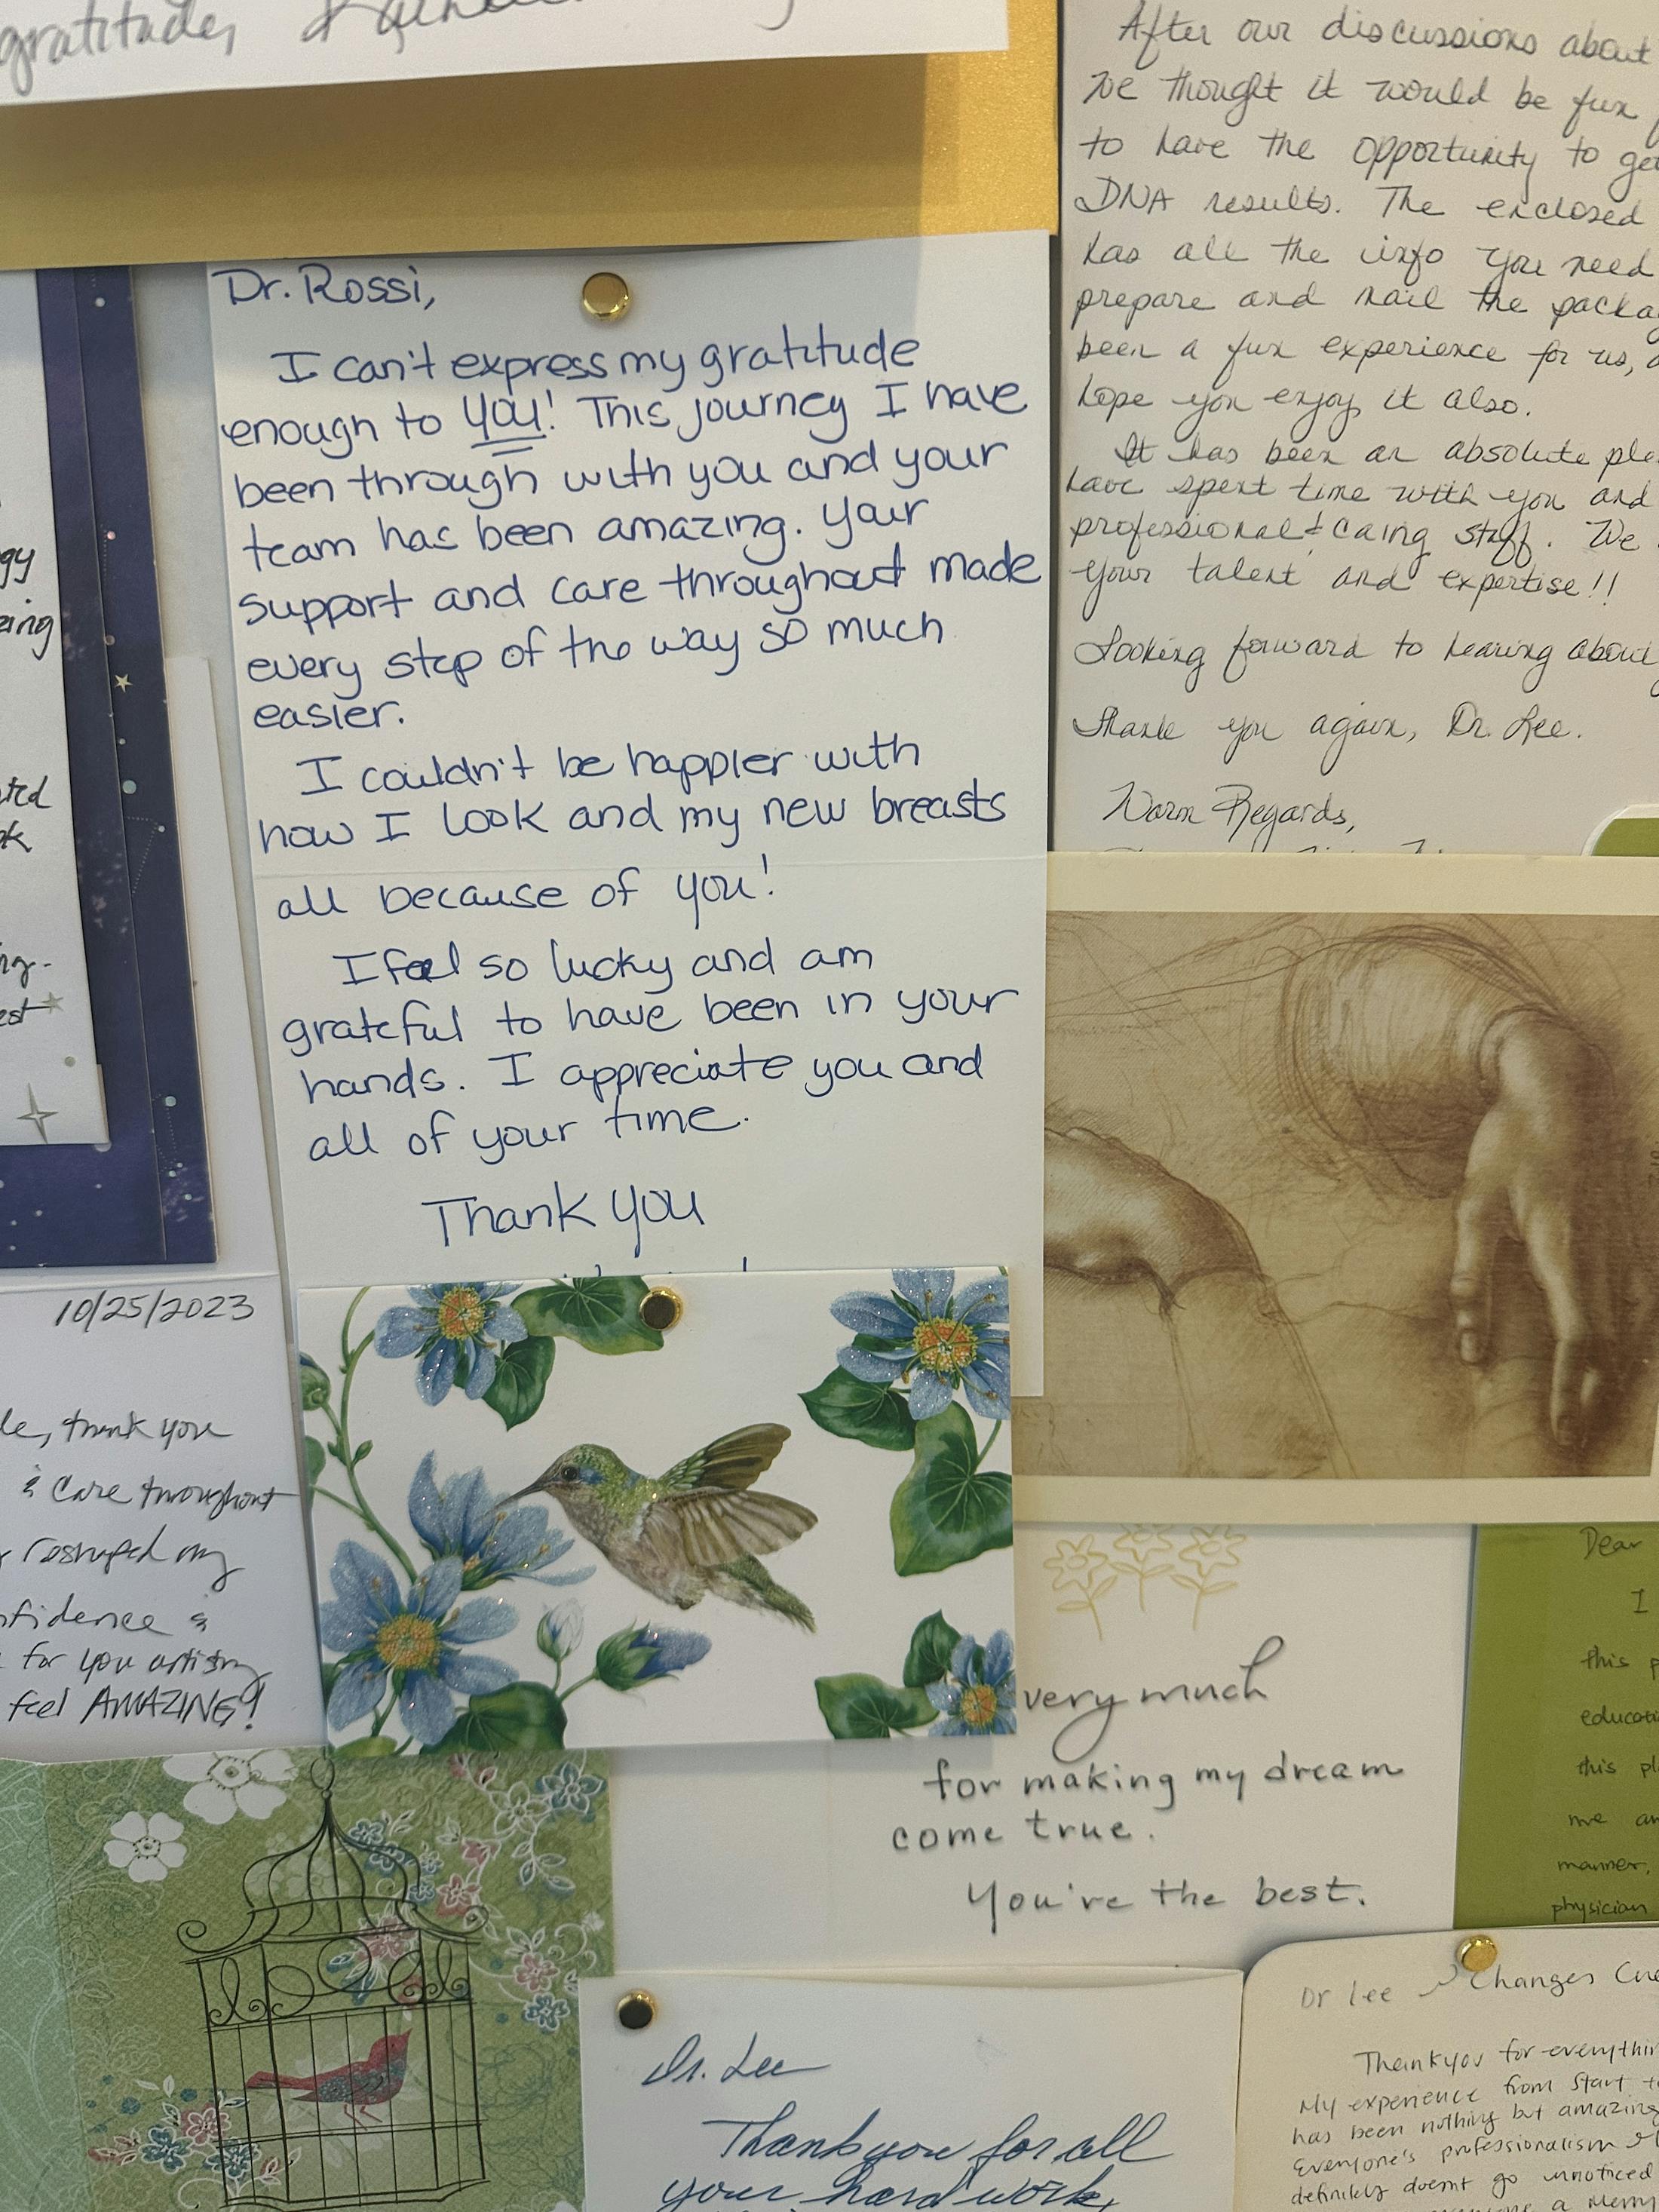 gratitude, &
After our discussions about
we thought it would be fun
to have the opportunity to get
DNA results. The enclosed
has all the info you need
prepare and mail the
been a fun experience for us,
hope you enjoy it also.
It has been an absolute
have spent time with you and
professional & caing staff. We
your talent and expertise!!
Looking forward to hearing about
Thank you again, Dr. Lee.
Warm Regards,
Dr. Rossi,
I can't express my gratitude
enough to you! This journey I have
been through with you and your
team has been amazing. your
support and care throughout made
every step of the way so much
easier.
I couldn't be happier with
how I look and my new breasts
all because of you!
I feel so lucky and am
grateful to have been in your
hands. I appreciate you and
all of your time.
Thank you
10/25/2023
thank you
& care throughout
reshaped my
&
for you artistry
feel AMAZING!
very much
for making my dream
come true.
You're the best.
Dear
I
this
this
me
manner,
physician
Dr. Lee
Thank you for all
your hard work,
Dr Lee
Changes
Thankyou for everythin
My experience from start
has been nothing but amazing
Everyone's professionalism &
definitely doesnt go unnoticed
a Merry